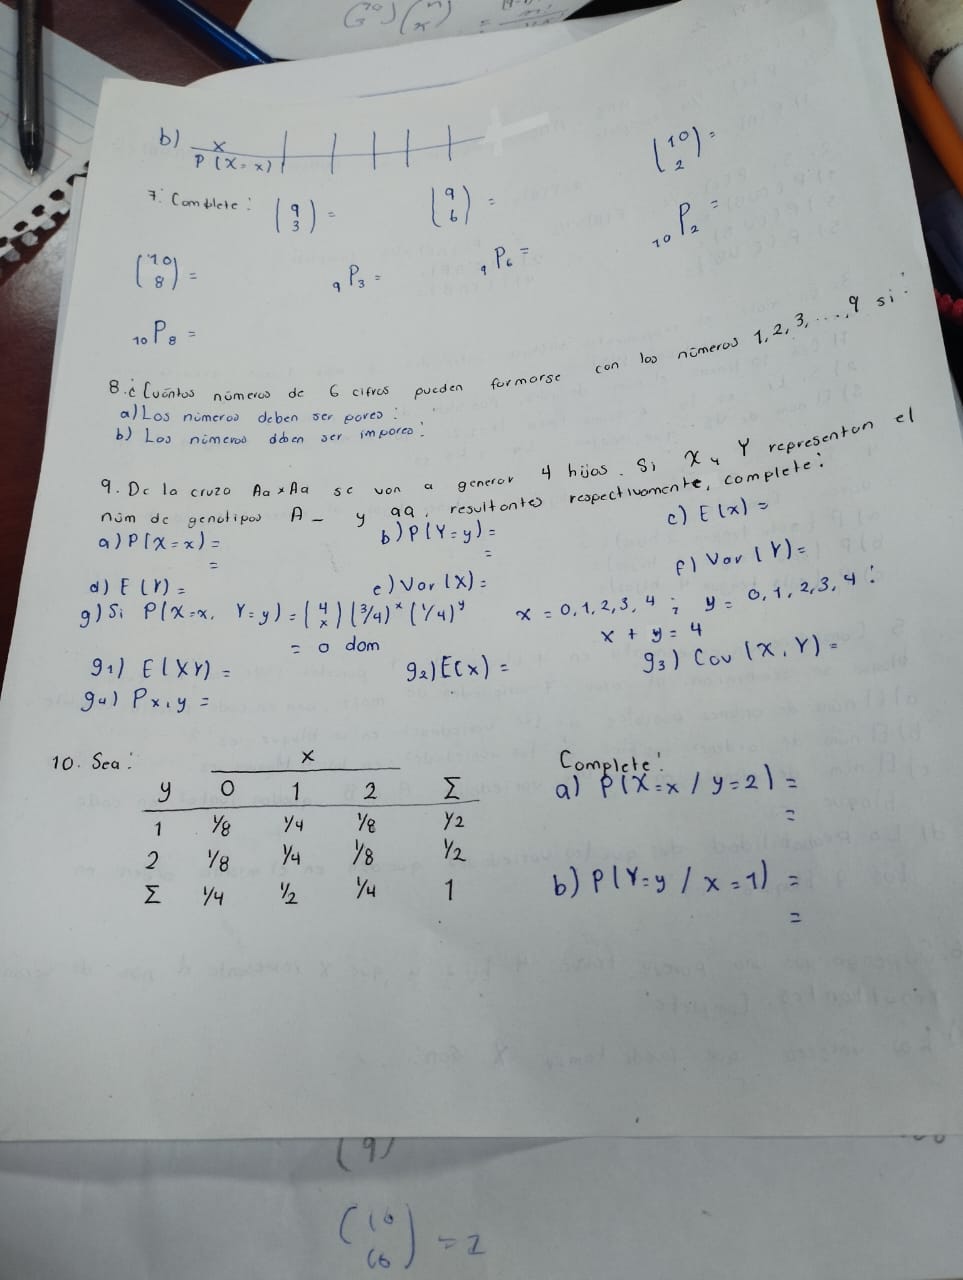 b) x
P(X=x)
(10 2) =
7. Complete: (9 3) = (9 6) =
(10 8) = 9P3 = 9P6 = 10P2 =
10P8 =
8. ¿Cuántos números de 6 cifras pueden formarse con los números 1,2,3,...,9 si:
a) Los números deben ser pares:
b) Los números dben ser impares:
9. De la cruza Aa x Aa se van a generar 4 hijos. Si X y Y representan el
núm de genotipos A_ y aa, resultantes respectivamente, complete:
a) P(X=x) =
=
b) P(Y=y) =
=
c) E(x) =
d) E(Y) =
e) Var(X) =
f) Var(Y) =
g) Si P(X=x, Y=y) = (4 x)(3/4)^x (1/4)^y x = 0,1,2,3,4 ; y = 0,1,2,3,4 :
= 0 dom x + y = 4
g1) E(XY) = g2) E(x) = g3) Cov(X,Y) =
g4) Px,y =
10. Sea:
x
y 0 1 2 Σ
1 1/8 1/4 1/8 1/2
2 1/8 1/4 1/8 1/2
Σ 1/4 1/2 1/4 1
Complete:
a) P(X=x / y=2) =
=
b) P(Y=y / x=1) =
=
(9)
(10 10) = 2